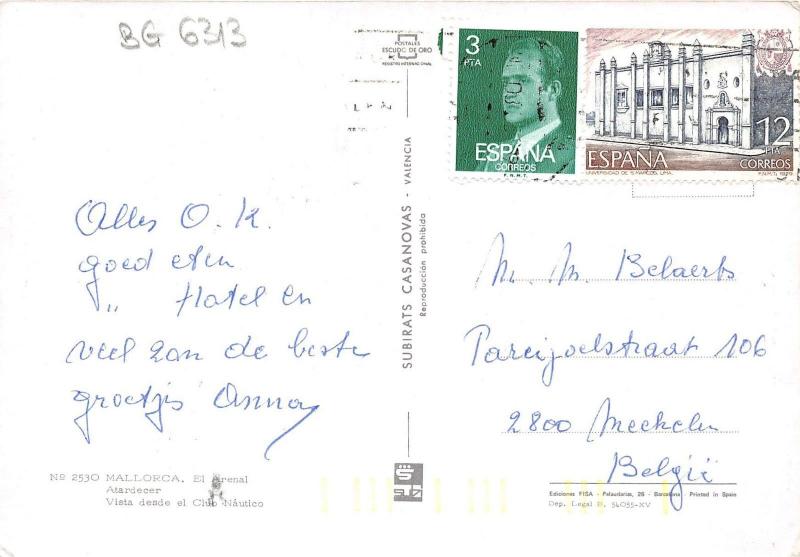 BG 6313
POSTALES
ESCUDO DE ORO
REGISTRO INTERNACIONAL
3
PTA
ESPAÑA
CORREOS
F.N.M.T.
12
PTA
ESPAÑA CORREOS
UNIVERSIDAD DE S. MARCOS. LIMA. F.N.M.T. 1979
Alles O.K.
goed eten
" Hotel en
veel zon de beste
groetjes Annay
SUBIRATS CASANOVAS - VALENCIA
Reproducción prohibida
M. M. Belaerts
Pareijpelstraat 106
2800 Mechelen
België
Nº 2530 MALLORCA. El Arenal
Atardecer
Vista desde el Club Náutico
Ediciones FISA - Palaudarias, 26 - Barcelona - Printed in Spain
Dep. Legal B. 54055-XV